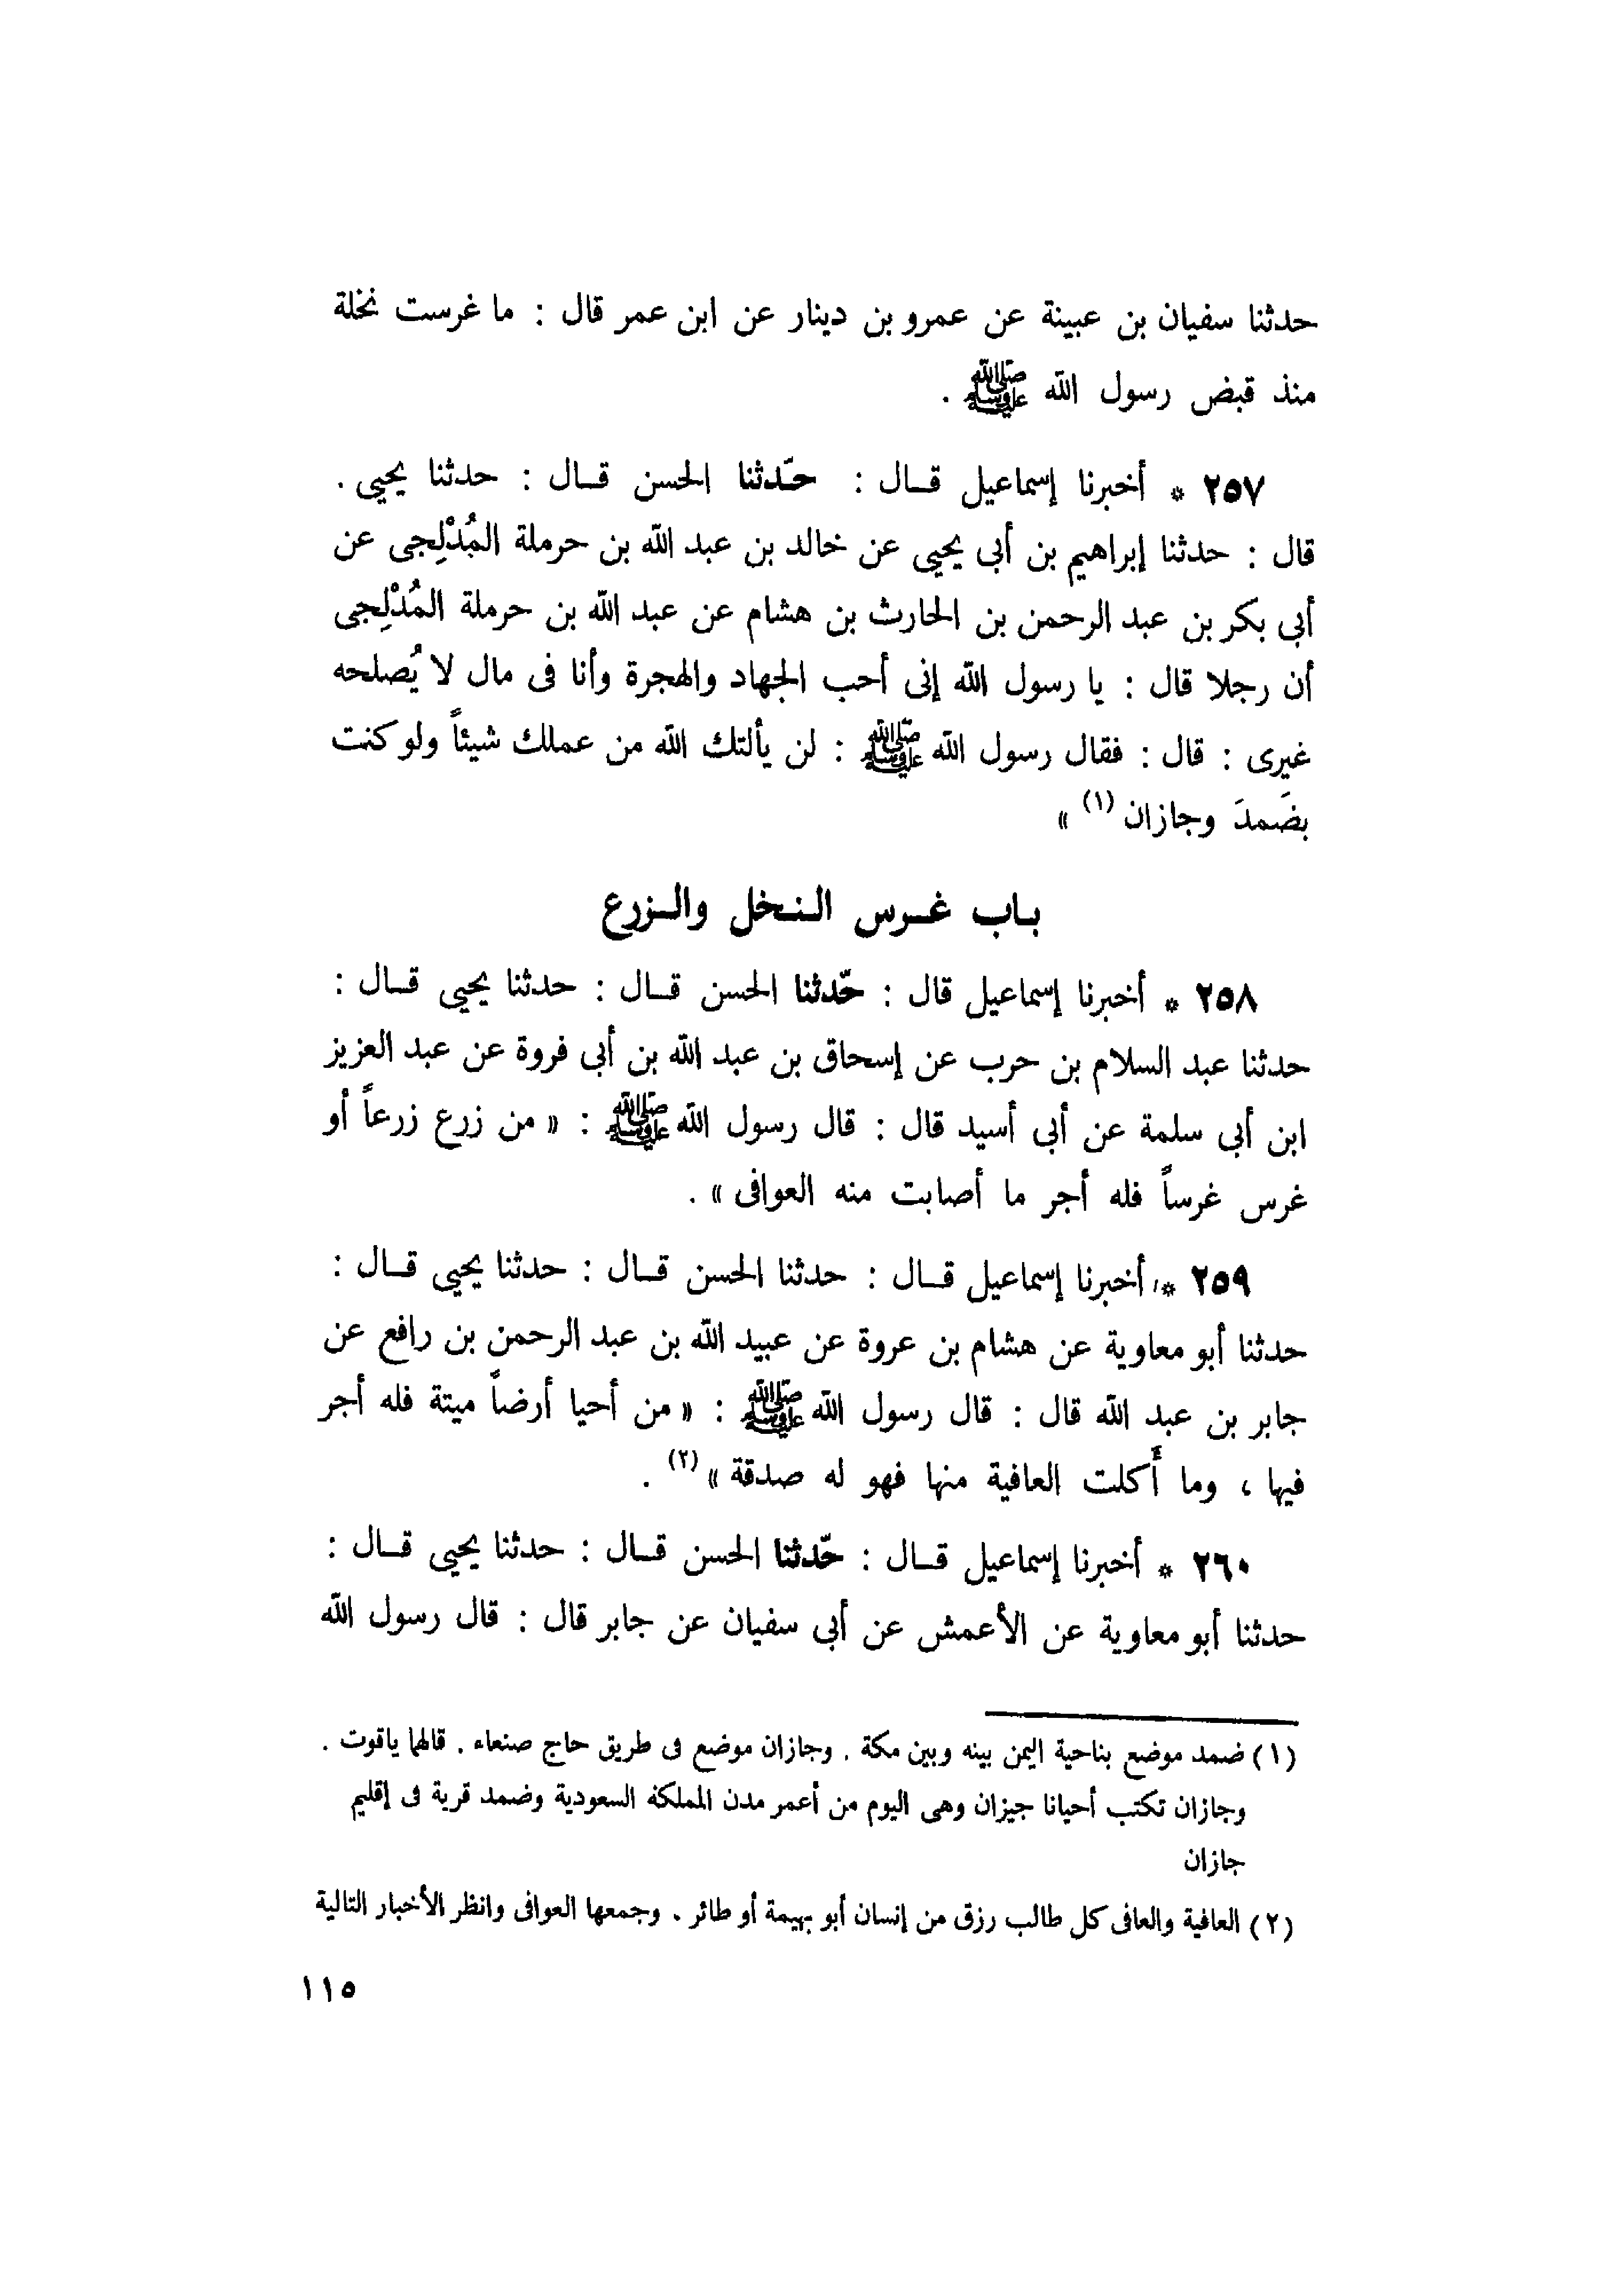 حدثنا سفيان بن عيينة عن عمرو بن دينار عن ابن عمر قال : ما غرست نخلة
منذ قبض رسول الله ﷺ .
٢٥٧ * أخبرنا إسماعيل قـال : حـّدثنا الحسن قـال : حدثنا يحيى .
قال : حدثنا إبراهيم بن أبى يحيى عن خالد بن عبد الله بن حرملة المُدْلِجى عن
أبى بكر بن عبد الرحمن بن الحارث بن هشام عن عبد الله بن حرملة المُدْلِجى
أن رجلا قال : يا رسول الله إنى أحب الجهاد والهجرة وأنا فى مال لا يُصلحه
غيرى : قال : فقال رسول الله ﷺ : لن يألتك الله من عملك شيئاً ولو كنت
بضَمدَ وجازان (١) »
بـاب غـرس الـنـخل والـزرع
٢٥٨ * أخبرنا إسماعيل قال : حّدثنا الحسن قـال : حدثنا يحيى قـال :
حدثنا عبد السلام بن حرب عن إسحاق بن عبد الله بن أبى فروة عن عبد العزيز
ابن أبى سلمة عن أبى أسيد قال : قال رسول الله ﷺ : « من زرع زرعاً أو
غرس غرساً فله أجر ما أصابت منه العوافى » .
٢٥٩ * أخبرنا إسماعيل قـال : حدثنا الحسن قـال : حدثنا يحيى قـال :
حدثنا أبو معاوية عن هشام بن عروة عن عبيد الله بن عبد الرحمن بن رافع عن
جابر بن عبد الله قال : قال رسول الله ﷺ : « من أحيا أرضاً ميتة فله أجر
فيها ، وما أَكلت العافية منها فهو له صدقة » (٢) .
٢٦٠ * أخبرنا إسماعيل قـال : حّدثنا الحسن قـال : حدثنا يحيى قـال :
حدثنا أبو معاوية عن الأعمش عن أبى سفيان عن جابر قال : قال رسول الله
(١) ضمد موضع بناحية اليمن بينه وبين مكة . وجازان موضع فى طريق حاج صنعاء . قالها ياقوت .
وجازان تكتب أحيانا جيزان وهى اليوم من أعمر مدن المملكة السعودية وضمد قرية فى إقليم
جازان
(٢) العافية والعافى كل طالب رزق من إنسان أبو بهيمة أو طائر . وجمعها العوافى وانظر الأخبار التالية
١١٥